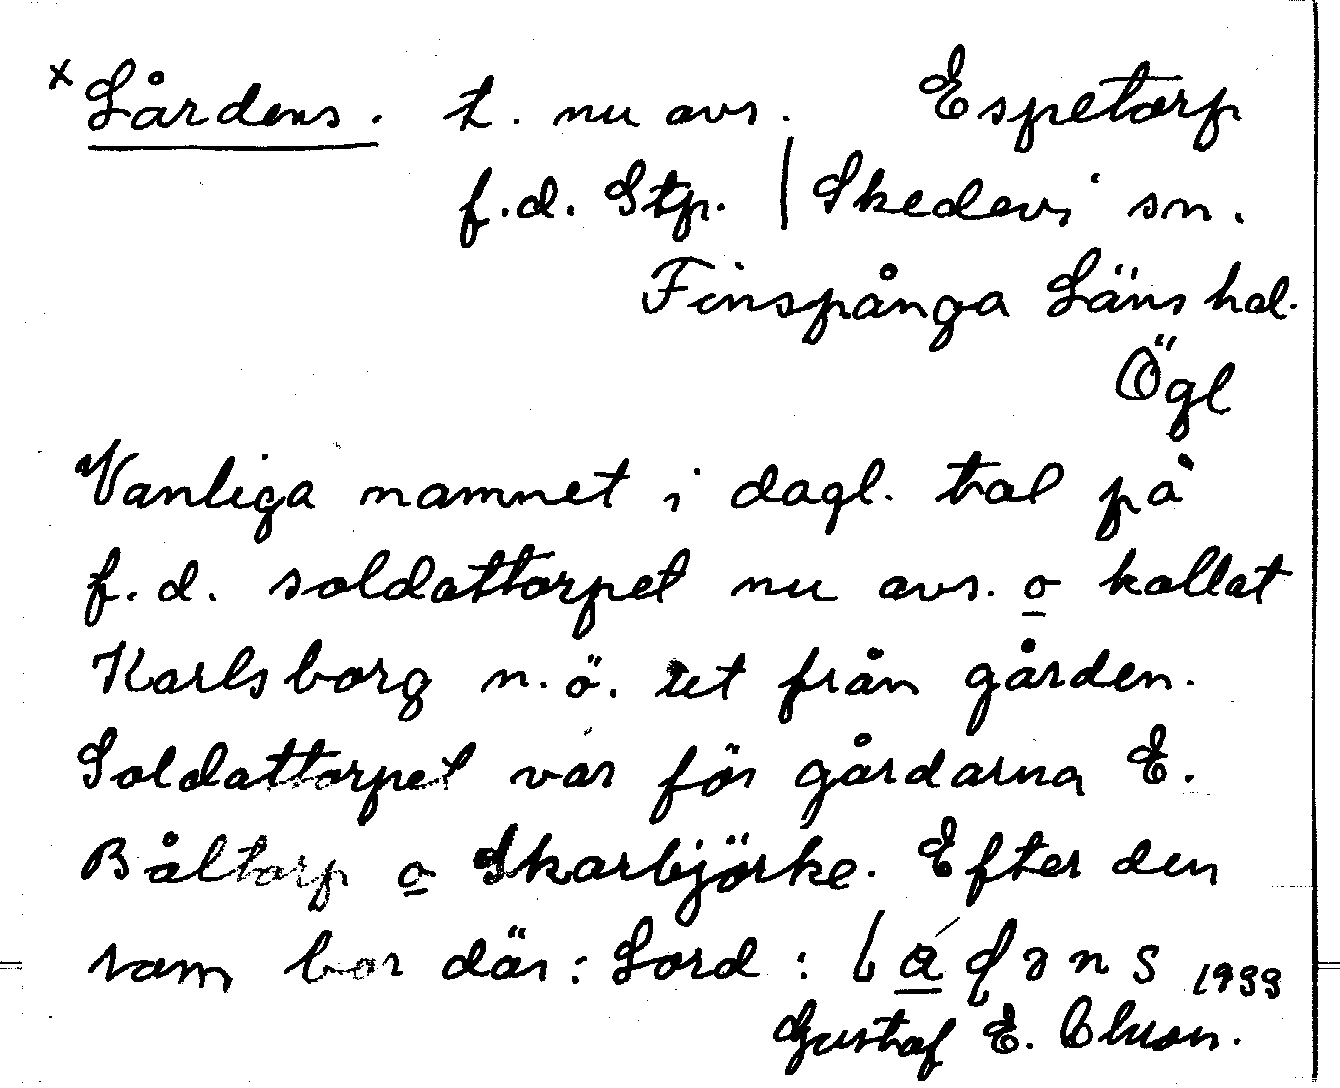 x Lårdens. t. nu avs. Espetorp
f.d. Stp. | Skedevi sn.
Finspånga Läns hd.
Ögl
Vanliga namnet i dagl. tal på
f.d. soldattorpet nu avs. o kallat
Karlsborg n.ö. ut från gården.
Soldattorpet var för gårdarna E.
Båltorp o Skarbjörke. Efter den
som bor där: Lord :
1933
Gustaf E.